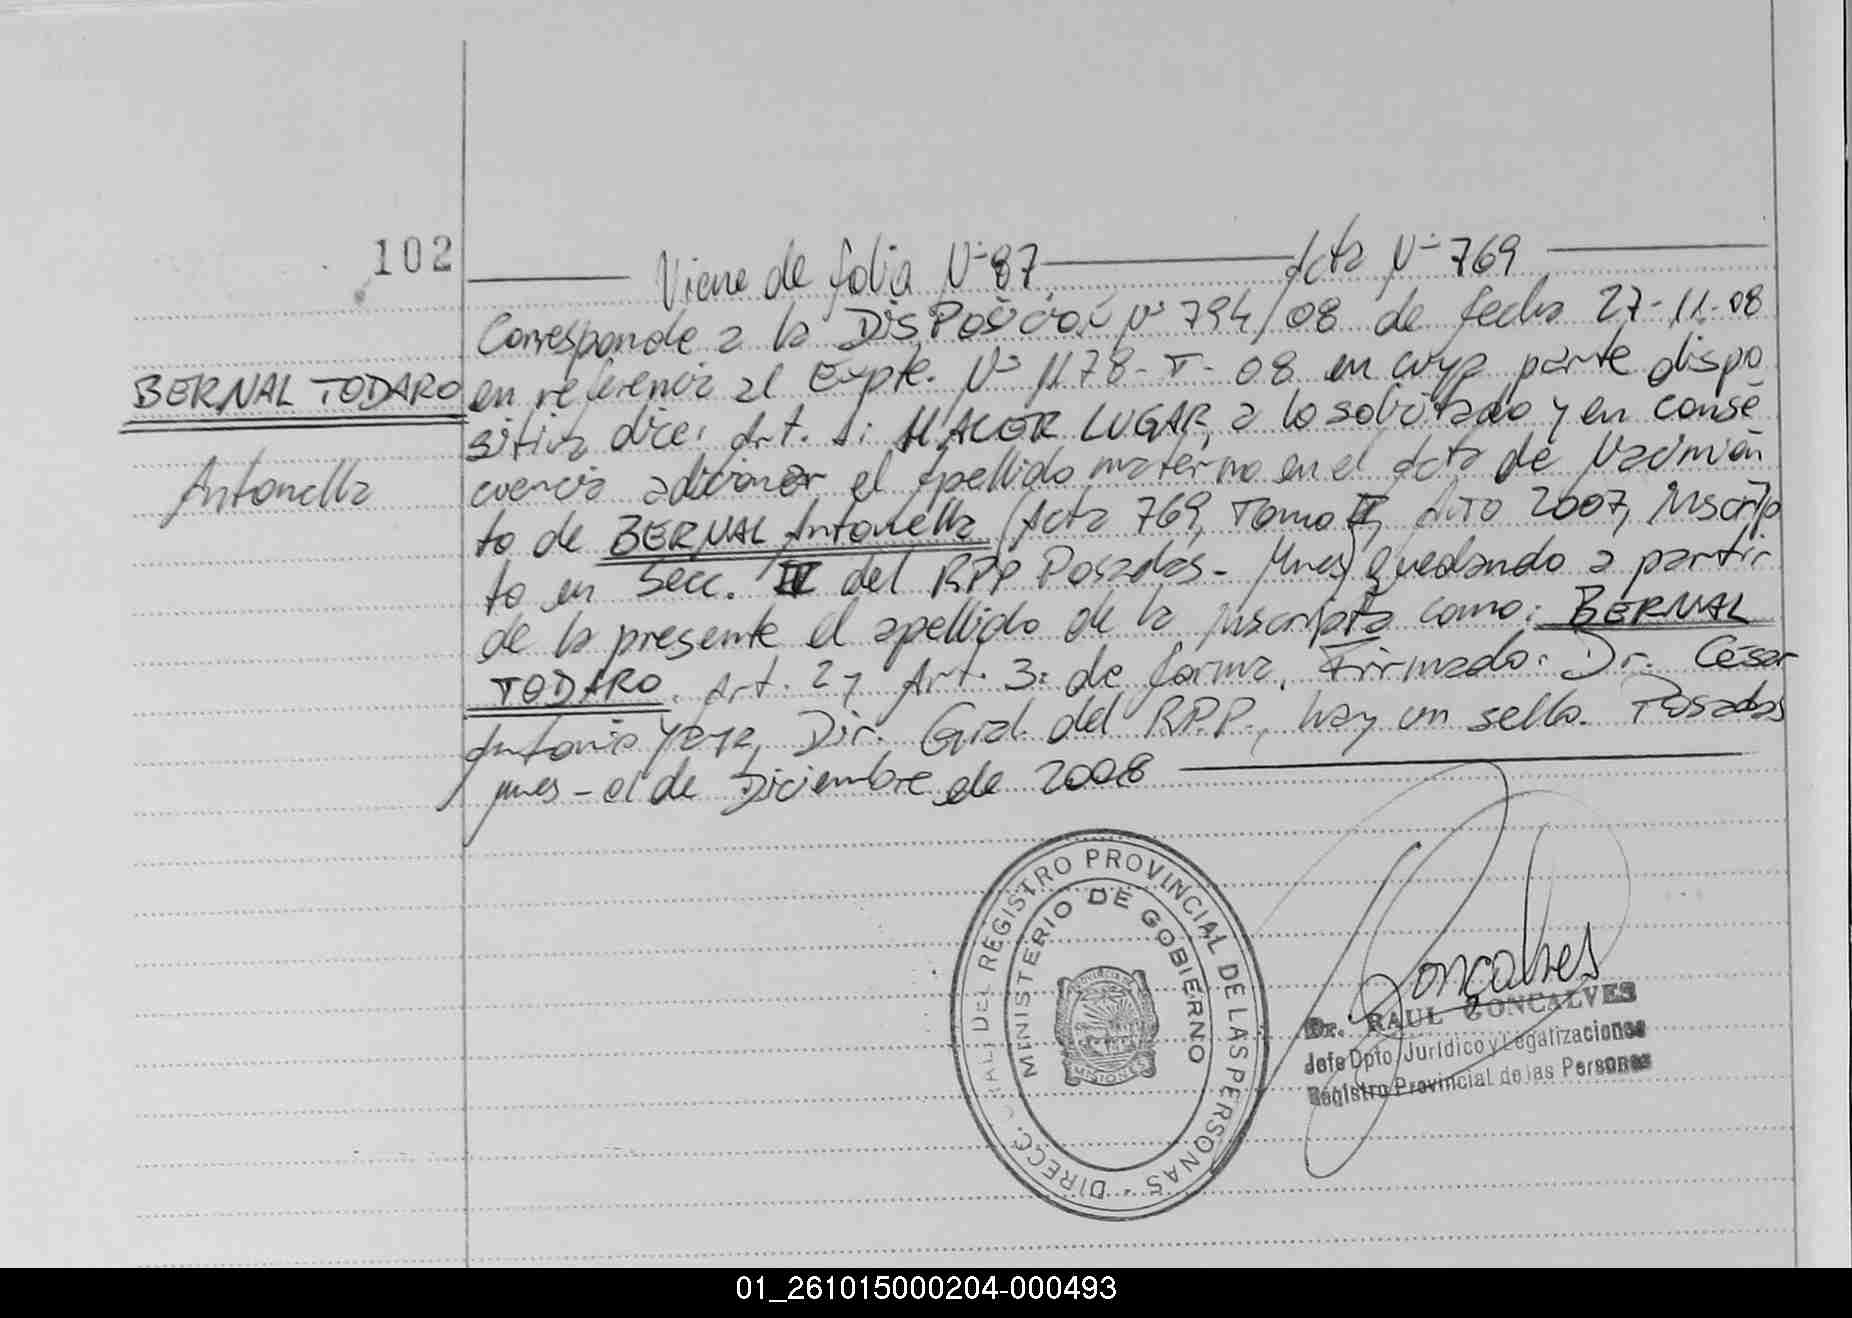 102
Viene de folia Nº 87 Acta Nº 769
Corresponde a la DISPOSICION Nº 794/08 de fecha 27-11-08
BERNAL TODARO
en referencia al Expte. Nº 1178-T-08 en cuya parte dispo
sitiva dice: Art. 1: HACER LUGAR, a lo solicitado y en conse
Antonella
cuencia adicionar el apellido materno en el Acta de Nacimien
to de BERNAL Antonella (Acta 769, Tomo II, Año 2007, inscrip
to en Secc. IV del RPP Posadas- Mnes) quedando a partir
de la presente el apellido de la inscripta como: BERNAL
TODARO. Art. 2 y Art. 3: de forma. Firmado: Dr. César
Antonio Yaya, Dir. Gral. del R.P.P., hay un sello. Posadas
Mnes - 01 de Diciembre de 2008
DIRECC. GRAL. DEL REGISTRO PROVINCIAL DE LAS PERSONAS
MINISTERIO DE GOBIERNO
PROVINCIA DE
MISIONES
Goncalves
Dr. RAUL GONCALVES
Jefe Dpto Jurídico y Legalizaciones
Registro Provincial de las Personas
01_261015000204-000493